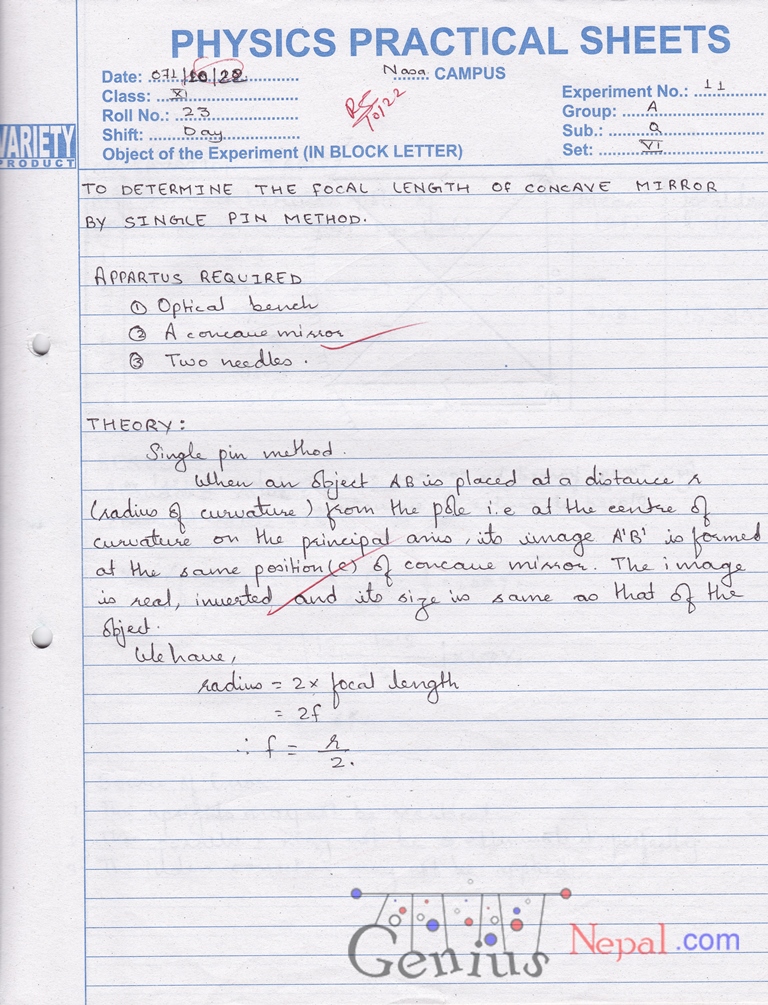 PHYSICS PRACTICAL SHEETS
Date: 071/10/22
Nasa CAMPUS
Class: XI
Experiment No.: 11
Roll No.: 23
Group: A
Shift: Day
Sub.: Q
Set: VI
10/22
VARIETY
PRODUCT
Object of the Experiment (IN BLOCK LETTER)
TO DETERMINE THE FOCAL LENGTH OF CONCAVE MIRROR
BY SINGLE PIN METHOD.
APPARTUS REQUIRED
① Optical bench
② A concave mirror
③ Two needles.
THEORY:
Single pin method.
When an object AB is placed at a distance r
(radius of curvature) from the pole i.e at the centre of
curvature on the principal axis, its image A'B' is formed
at the same position(c) of concave mirror. The image
is real, inverted and its size is same as that of the
object.
We have,
radius = 2x focal length
= 2f
∴ f = r/2.
Genius Nepal.com